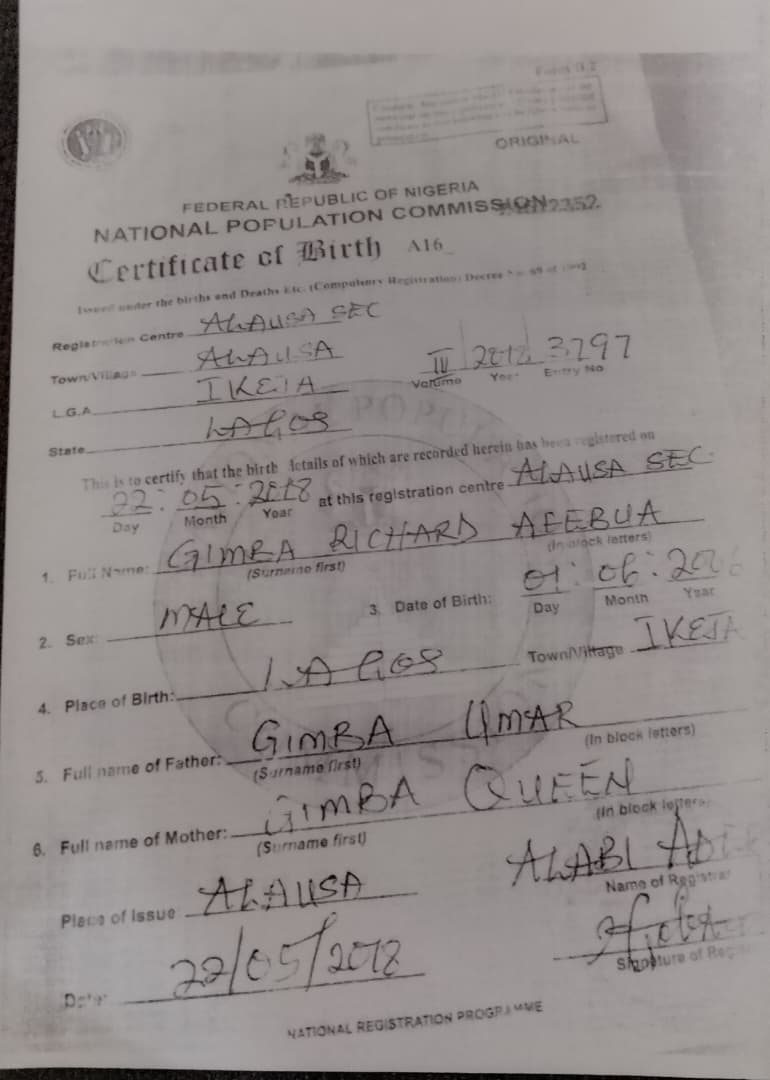 ORIGINAL
FEDERAL REPUBLIC OF NIGERIA
NATIONAL POPULATION COMMISSION 2352
Certificate of Birth A16
Issued under the births and Deaths Etc. (Compulsory Registration) Decree No. 69 of 1992
Registration Centre ALAUSA SEC
Town/Village ALAUSA
L.G.A. IKEJA
IV 2018 3797
Volume Year Entry No
State LAGOS
This is to certify that the birth details of which are recorded herein has been registered on
22 : 05 : 2018 at this registration centre ALAUSA SEC.
Day Month Year
1. Full Name: GIMBA RICHARD AFEBUA
(Surname first) (In block letters)
2. Sex: MALE 3. Date of Birth: 01 : 06 :
Day Month Year
4. Place of Birth: LAGOS Town/Village IKEJA
5. Full name of Father: GIMBA UMAR
(Surname first) (In block letters)
6. Full name of Mother: GIMBA QUEEN
(Surname first) (In block letters)
Place of Issue ALAUSA ALABI
Name of Registrar
Date: 22/05/2018
Signature of
NATIONAL REGISTRATION PROGRAMME